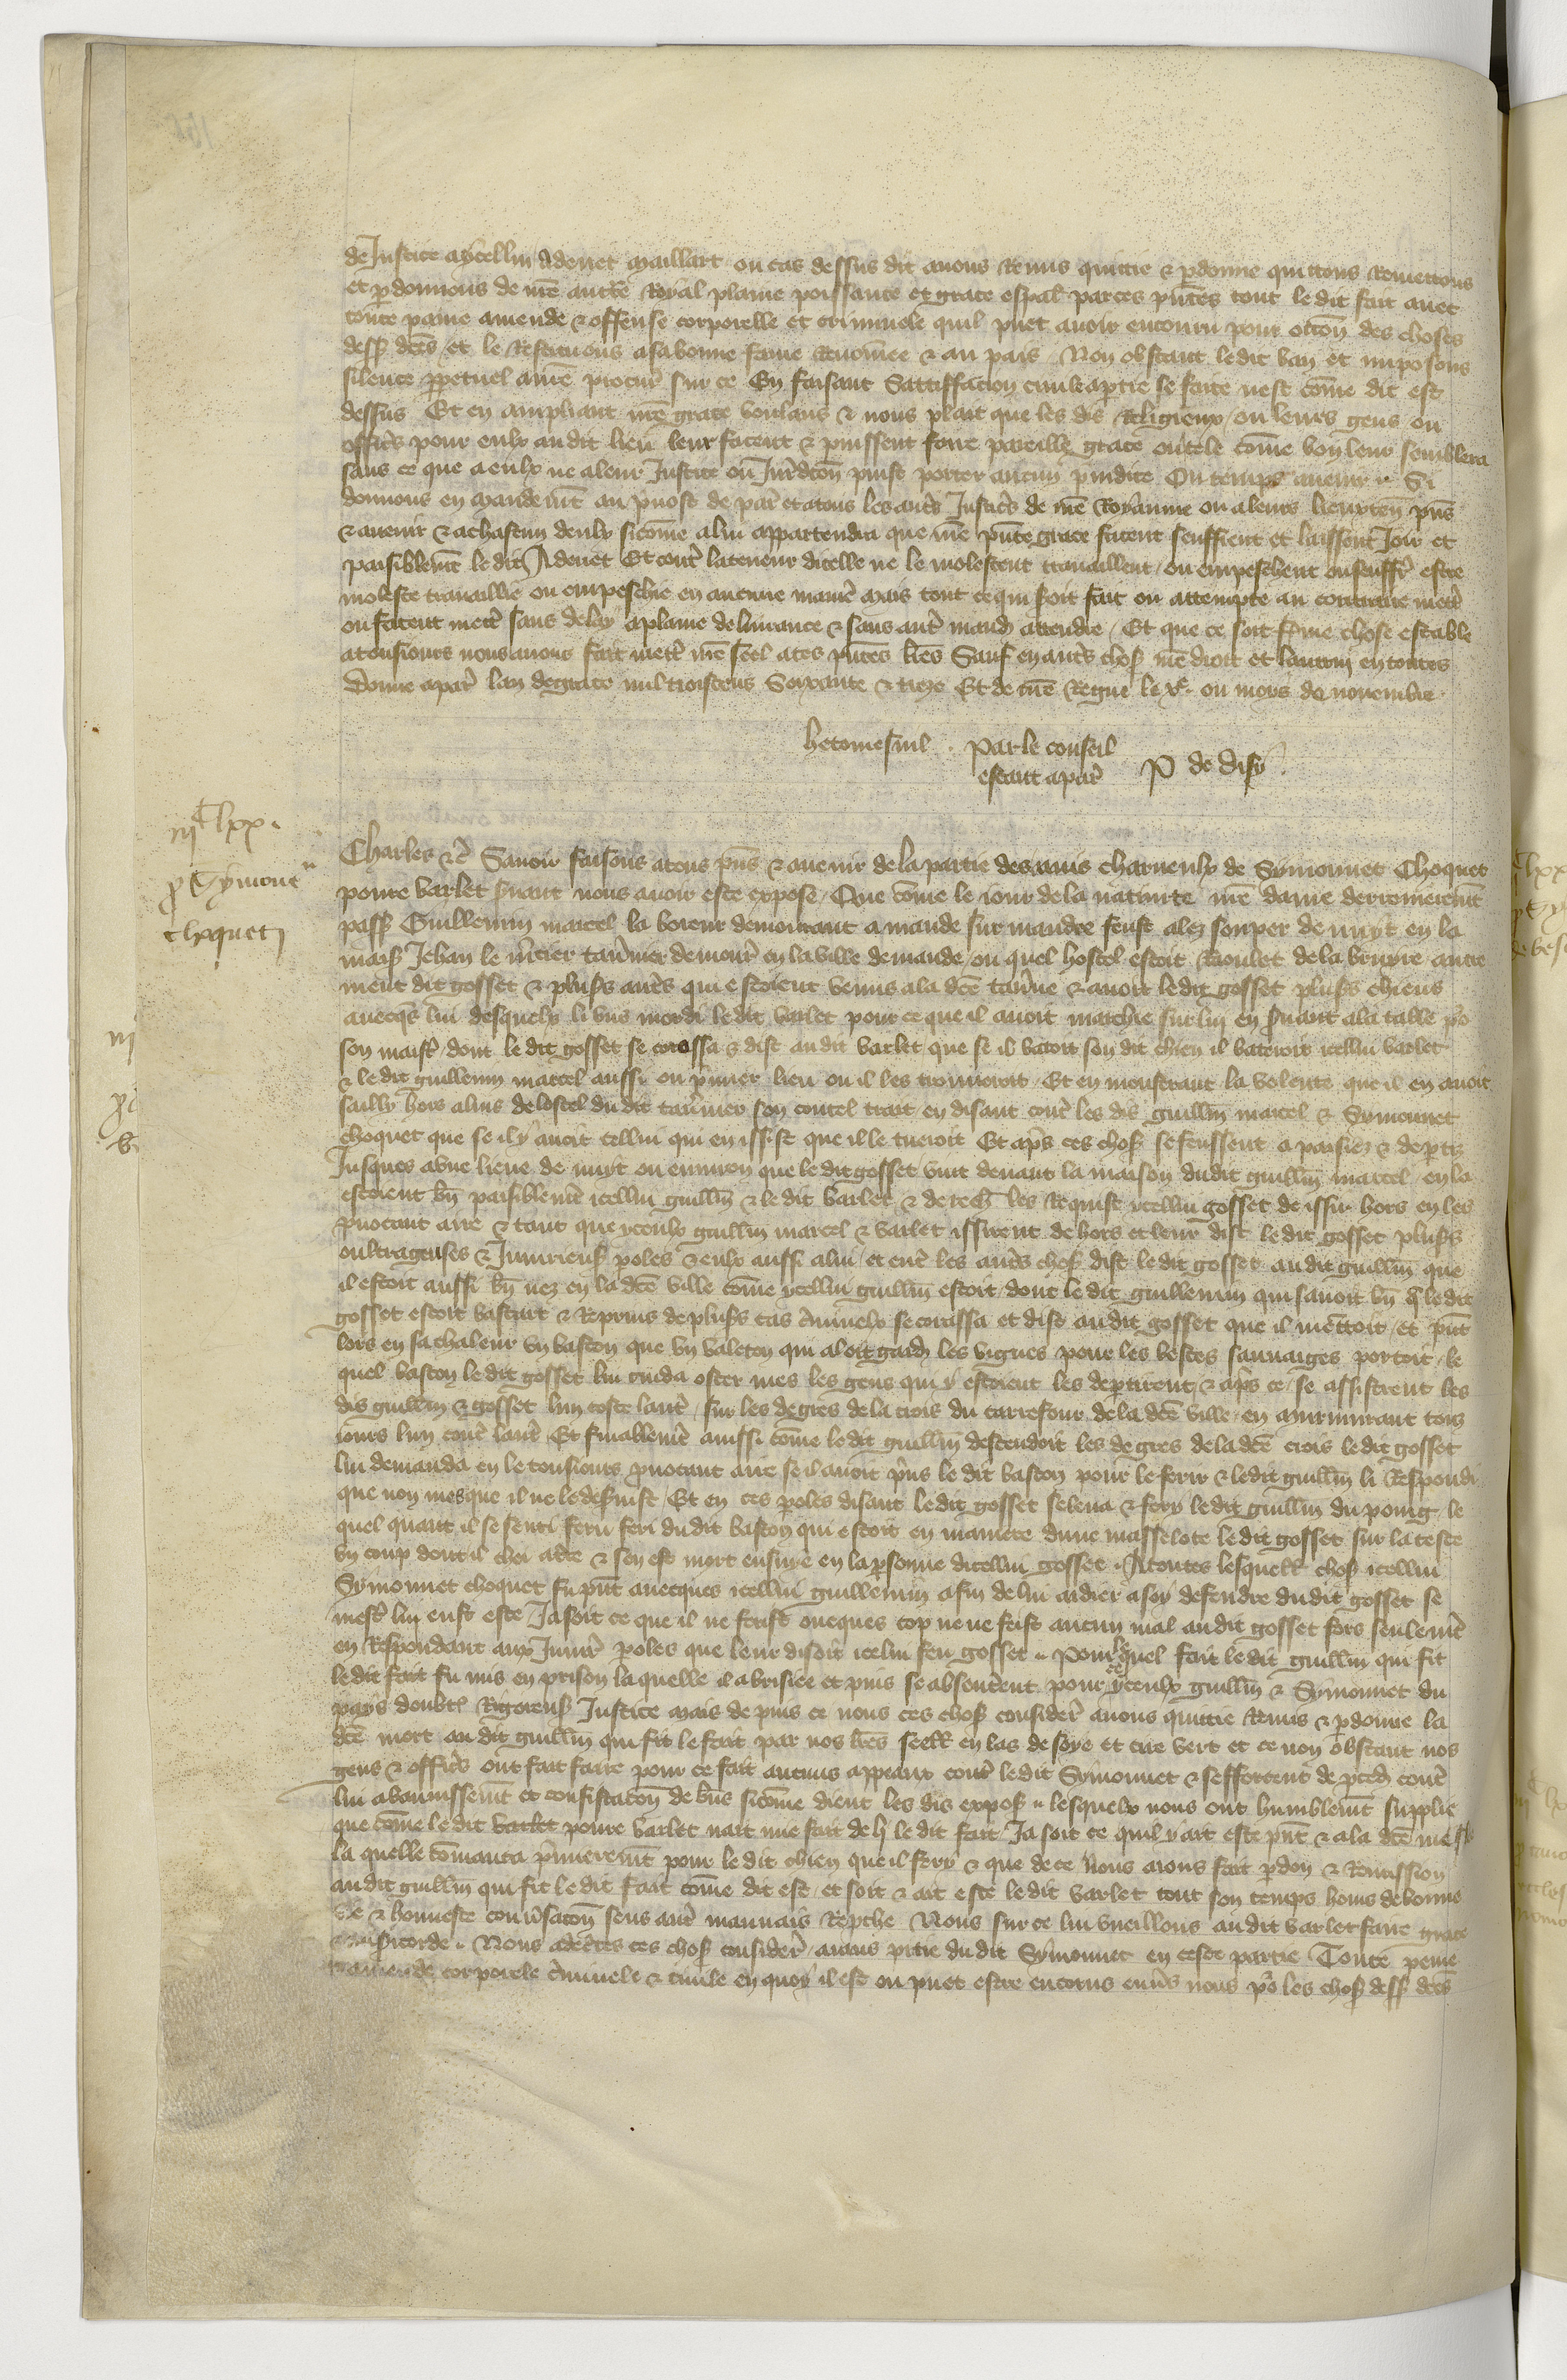 de Justice aycellui Adenet Maillart ou cas dessus dit auons Remis quittie & pdonne quittons Remettons
et pdonnons de nre auctẽ Royal plaine poissance et grace espãl par ces pntes tout le dit fait auec
toute paine amende & offense corporelle et criminele quil puet auoir encouru pour occoñ des choses
dess dctes et le Restituons a sa bonne fame Renomee & au pais Non obstant le dit ban et imposons
silence ppetuel a nrẽ procur̃ sur ce En faisant Sattiffacion ciuile a ptie se faite nest cõme dit est
dessus Et en ampliant nrẽ grace voulans & nous plait que les dis Religieux ou leurs gens ou
offic̃rs pour eulx au dit lieu leur facent & puissent faire pareille grace ou tele cõme bon leur semblera
sans ce que a eulx ne a leur Justice ou Jur̃dcõn puist porter aucun preiudice Ou temps auenir Si
donnons en mandemt̃ au pũost de par̃ et a tous les autr̃s Justic̃rs de nrẽ Royaume ou a leurs lieuxteñ pñs
& auenir & a chascun deulx sicõme a lui appartendra que nrẽ pñte grace facent seuffrent et laissent Joir et
paisiblemt̃ le dit Adenet Et contr̃ la teneur dicelle ne le molestent trauaillent ou empeschent ou seuffr̃ estre
moleste trauaillie ou empeschie en aucune manier̃ Mais tout ce qui seroit fait ou attempte au contraire mettẽ
ou facent mettr̃ sans delay a plaine deliurance & sans autr̃ mand attendre Et que ce soit ferme chose estable
a tousiours nous auons fait mettr̃ nrẽ seel a ces pñtes lr̃es Sauf en autr̃s chos nrẽ droit et lautruy en toutes
Donne a par̃ lan de grace mil troiscens Soixante & treze Et de nrẽ Regne le xe ou mois de nouembre
hetomesnil Par le conseil
estant a par̃ P de disy
iijC lxx
p Symont
choqueti
Charles &c̃ Sauoir faisons a tous pñs & auenir de la partie des amis charnelx de Symonnet Choquet
poure varlet seruant nous auoir este expose Que cõme le iour de la natiuite nrẽ dame derrenieremt̃
pass Guillemin marcel laboreur demourant a mande sur mandre feust alez souper de nuyt en la
mais Jehan le m̃cier tauernier demour̃ en la ville demande ou quel hostel estoit Raoulet de la bruyere autre
ment dit gosset & pluss autr̃s qui estoient venus a la dcẽ tauẽne & auoit le dit gosset pluss chiens
auecq̃s lui desquelx li vns mordi le dit varlet pour ce que il auoit marchie sur lui en seruant a la table põ
son maistr̃ dont le dit gosset se corossa & dist au dit varlet que se il batoit son dit chien il bateroit icellui varlet
& le dit guillemin marcel aussi ou pmier lieu ou il les trouueroit Et en monstrant la volente que il en auoit
sailly hors a lui de lostel du dit tauernier son coutel trait en disant contr̃ les dis guillm̃ marcel & Symonnet
choquet que se il y auoit cellui qui en issist que il le tueroit Et ap̃s ces chos se feussent apaisiez & deptiz
Jusques a vne lieue de nuyt ou enuiron que le dit gosset vint deuant la maison du dit guillm̃ marcel en la
estoient bñ paisiblemt̃ icellui guillm̃ & le dit varlet & de rech les Requist ycellui gosset de issir hors en les
puocant a ire & tant que yceulx guillm̃ marcel & varlet issirent dehors et leur dist le dit gosset pluss
oultrageuses & Jniurieuss poles & eulx aussi a lui et entr̃ les autr̃s chos dist le dit gosset au dit guillm̃ que
il estoit aussi bñ nez en la dcẽ ville cõme ycellui guillm̃ estoit dont le dit guillemin qui sauoit bñ q̃ le dit
gosset estoit bastart & Reprins de pluss cas c̃minelx se corossa et dist au dit gosset que il mentoit et print
lors en sa chaleur vn baston que vn valeton qui aloit gard les vignes pour les bestes sauuaiges portoit le
quel baston le dit gosset lui cuida oster mes les gens qui y estoient les deptirent & ap̃s ce se assistrent les
dis guillm̃ & gosset lun coste lautr̃ sur les degres de la crois du carrefour de la dcẽ ville en murmurant tous
iours lun contr̃ lautr̃ Et finablemt̃ ainssi cõme le dit guillm̃ descendoit les degres de la dcẽ crois le dit gosset
lui demanda en le tousiours puocant a ire se il auoit pr̃ns le dit baston pour le ferir & le dit guillm̃ li Respondi
que non mes que il ne le deseruist Et en ces poles disant le dit gosset se leua & fery le dit guillm̃ du poing le
quel quant il se senti feru feri du dit baston qui estoit en maniere dune masselote le dit gosset sur la teste
vn coup dont il chei a tr̃e & sen est mort ensuye en la psonne dicellui gosset A toutes lesquelx chos icellui
Symonnet choquet fu pñt auecques icellui guillemin afin de lui aidier a soy defendre du dit gosset se
mestr̃ lui eust este Ja soit ce que il ne ferist oncques cop ne ne feist aucun mal au dit gosset fors seulemt̃
en Respondant aux Jniur̃ poles que leur disoit icelui feu gosset Pour lequel fait le dit guillm̃ qui fit
le dit fait fu mis en prison la quelle il a brisiee et puis se absenterent pour ce yceulx guillm̃ & Symonnet du
pays doubtã Rigoreuss Justice Mais depuis ce nous ces chos consider̃ auons quittie Remis & pdonne la
dcẽ mort au dit guillm̃ qui fit le fait par nos lr̃es seell en las de soye et cire vert et ce non obstant nos
gens & offic̃rs ont fait faire pour ce fait aucuns appeaux contr̃ le dit Symonnet & sefforcent de pced contr̃
lui a bannissemt̃ et confiscacõn de bñs sicõme dient les dis expos lesquelx nous ont humblemt̃ supplie
que cõme le dit varlet poure varlet nait mie fait de li le dit fait Ja soit ce quil y ait este pñt & a la dcẽ meslee
la quelle cõmanca p̃mieremt̃ pour le dit chien que il fery & que de ce nous aions fait pdon & Remission
au dit guillm̃ qui fit le dit fait cõme dit est et soit & ait este le dit varlet tout son temps homs de bonne
vie & honneste conũsacõn sens autr̃ mauuais Repche Nous sur ce lui vueillons au dit varlet faire grace
& misericorde Nous adcẽrtes ces chos consider̃ aians pitie du dit Symonnet en ceste partie Toute peine
& amende corporele c̃minele & ciuile en quoy il est ou puet estre encorus enũs nous põ les chos dess dctẽs